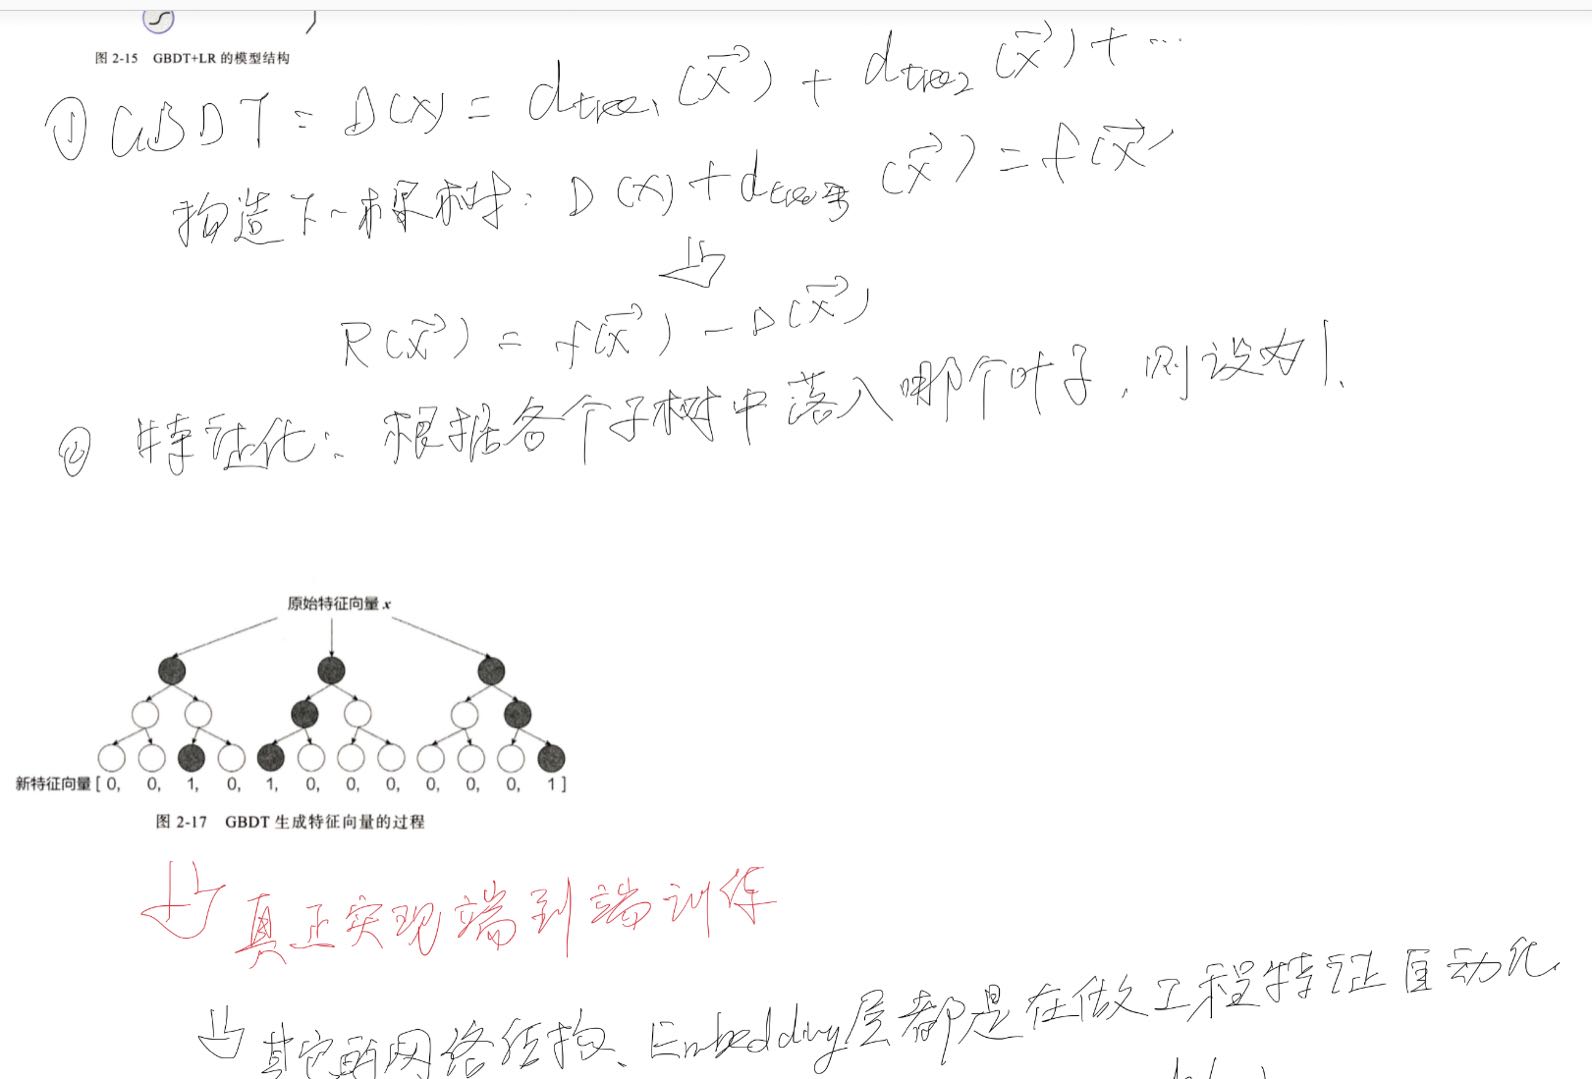 图 2-15 GBDT+LR 的模型结构
① GBDT: D(x) = dtree1(x⃗) + dtree2(x⃗) + ...
构造下一棵树: D(x) + dtree(x⃗) = f(x⃗)
R(x⃗) = f(x⃗) - D(x⃗)
② 特征化: 根据各个子树中落入哪个叶子, 则设为1.
原始特征向量 x
新特征向量 [ 0, 0, 1, 0, 1, 0, 0, 0, 0, 0, 0, 1 ]
图 2-17 GBDT 生成特征向量的过程
真正实现端到端训练
其它的网络结构、Embedding层都是在做工程特征自动化